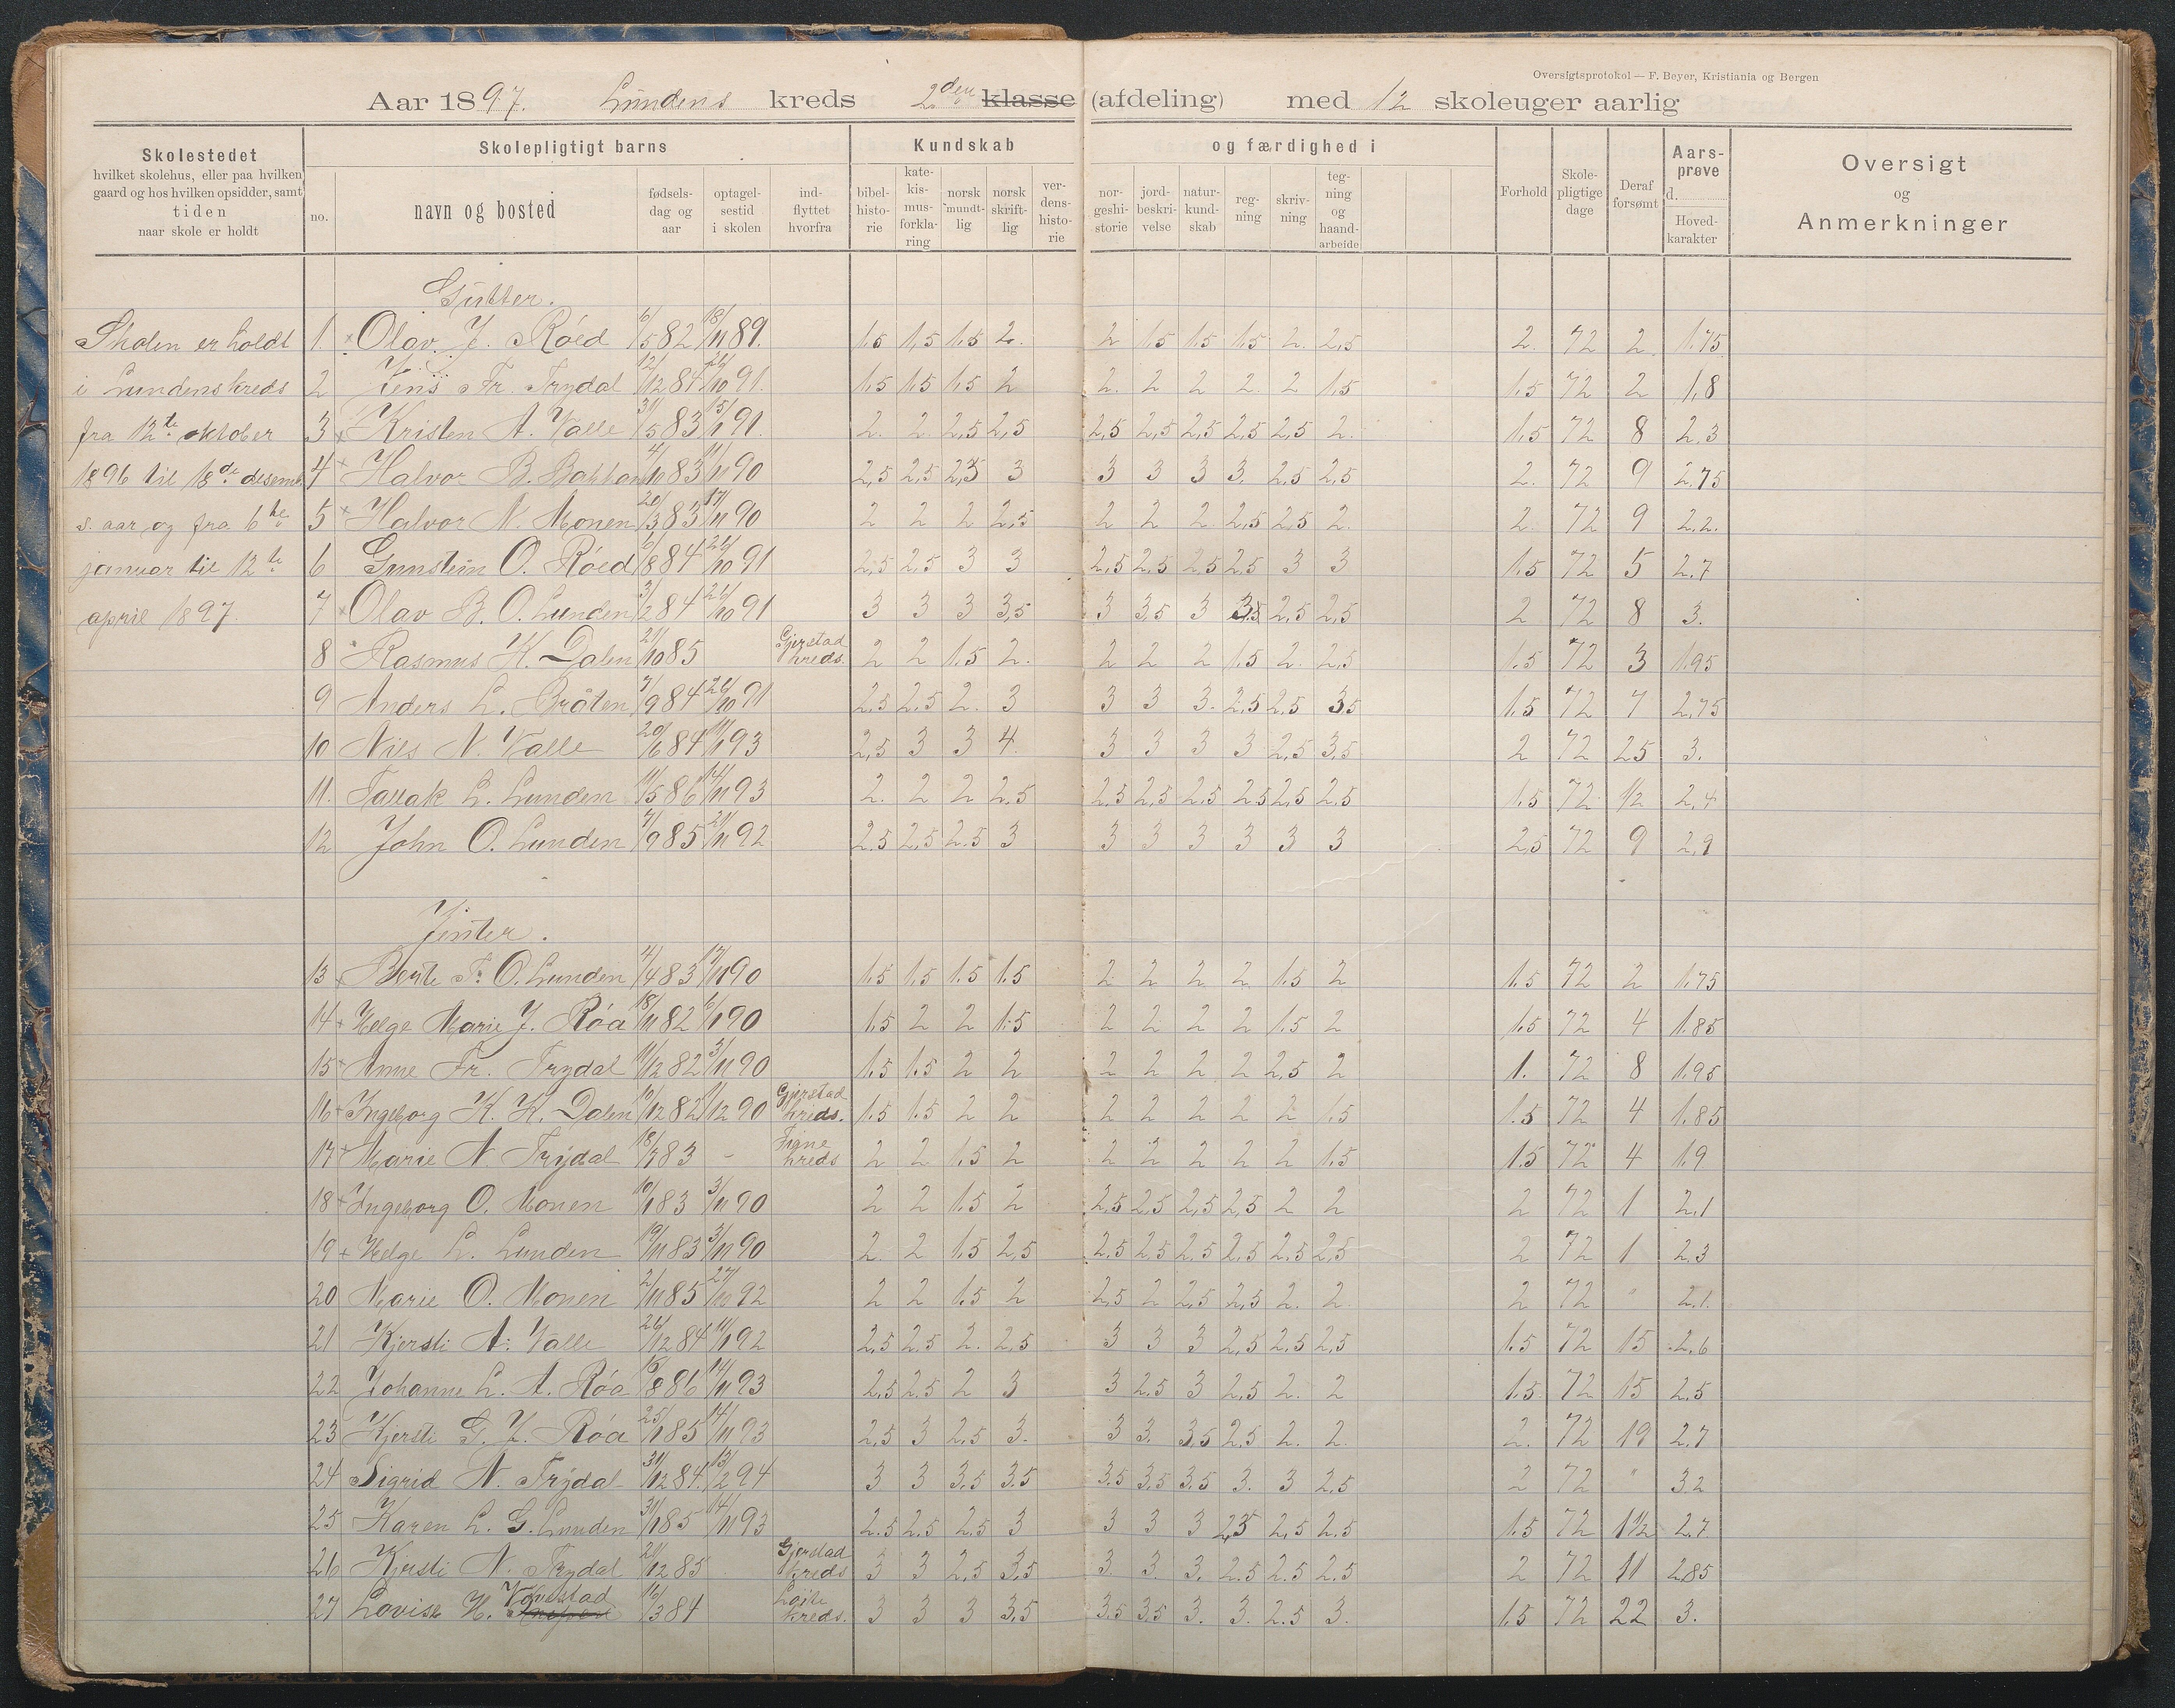 Oversigtsprotokol — F. Beyer, Kristiania og Bergen
Aar 1897. Lundens kreds 2den klasse (afdeling) med 12 skoleuger aarlig
Skolestedet
hvilket skolehus, eller paa hvilken
gaard og hos hvilken opsidder, samt
tiden
naar skole er holdt
Skolepligtigt barns
no.
navn og bosted
fødsels-
dag og
aar
optagel-
sestid
i skolen
ind-
flyttet
hvorfra
Kundskab
bibel-
histo-
rie
kate-
kis-
mus-
forkla-
ring
norsk
mundt-
lig
norsk
skrift-
lig
ver-
dens-
histo-
rie
og færdighed i
nor-
geshi-
storie
jord-
beskri-
velse
natur-
kund-
skab
reg-
ning
skriv-
ning
teg-
ning
og
haand-
arbeide
Forhold
Skole-
pligtige
dage
Deraf
forsømt
Aars-
prøve
d.
Hoved-
karakter
Oversigt
og
Anmerkninger
Skolen er holdt
i Lundens kreds
fra 12te oktober
1896 til 18de desemb.
s. aar og fra 6te
januar til 12te
april 1897.
Gutter.
1. × Olav J. Røed 6/5 82 18/11 89. 1.5 1,5 1.5 2. 2 1.5 1.5 1.5 2. 2,5 2. 72 2 1.75
2 Jens Fr. Trydal 12/12 84 26/10 91. 1.5 1.5 1.5 2 2. 2 2 2. 2 1.5 1.5 72 2 1,8
3 × Kristen A. Valle 31/5 83 15/1 91. 2. 2. 2,5 2,5 2,5 2,5 2,5 2.5 2.5 2. 1.5 72 8 2.3
4 × Halvor B. Bakken 4/10 83 11/11 90 2,5 2,5 2,5 3 3 3 3 3. 2.5 2,5 2. 72 9 2.75
5 × Halvor N. Monen 20/3 83 17/11 90 2 2 2 2,5 2 2 2 2,5 2,5 2. 2. 72 9 2.2.
6 Gunstein O. Røed 6/8 84 26/10 91 2,5 2,5 3 3 2,5 2.5 2.5 2.5 3 3 1.5 72 5 2.7
7 × Olav B. O. Lunden 3/2 84 26/10 91 3 3 3 3,5 3 3,5 3 3.5 2,5 2,5 2 72 8 3.
8 Rasmus K. Dalen 21/10 85 Gjerstad kreds. 2 2 1.5 2. 2 2 2 1.5 2. 2,5 1.5 72 3 1.95
9 Anders L. Bråten 7/9 84 26/10 91 2.5 2.5 2. 3 3 3 3. 2.5 2.5 3.5 1.5 72 7 2.75
10 Nils N. Valle 20/6 84 11/1 93 2,5 3 3 4. 3 3 3 3 2.5 3.5 2 72 25 3.
11. Tallak L. Lunden 11/5 86 14/11 93 2. 2 2 2.5 2.5 2,5 2,5 2.5 2,5 2,5 1.5 72 1/2 2,4
12 John O. Lunden 7/9 85 21/11 92 2.5 2,5 2.5 3 3 3 3 3 3 3 2,5 72 9 2,9
Jenter.
13 × Berte T. O. Lunden 4/4 83 17/11 90 1.5 1.5 1.5 1.5 2 2 2 2 1.5 2 1.5 72 2 1.75
14 × Helge Marie J. Røa 18/11 82 6/1 90 1.5 2 2 1.5 2 2 2 2 1.5 2 1.5 72 4 1.85
15 × Anne Fr. Trydal 11/12 82 3/11 90 1.5 1.5 2 2 2 2 2 2 2,5 2 1. 72 8 1.95
16 × Ingeborg K. K. Dalen 10/12 82 1/12 90 Gjerstad kreds. 1.5 1.5 2 2 2 2 2 2 2 1.5 1.5 72 4 1.85
17 × Marie N. Trydal 18/7 83 - Fiane kreds 2 2 1.5 2 2 2 2 2 2 1.5 1.5 72 4 1.9
18 × Ingeborg O. Monen 10/1 83 3/11 90 2 2 1.5 2 2.5 2.5 2,5 2,5 2 2 2 72 1 2.1
19 × Helge L. Lunden 19/11 83 3/11 90 2. 2 1.5 2,5 2.5 2.5 2.5 2.5 2.5 2,5 2 72 1 2.3
20 Marie O. Monen 2/11 85 27/10 92 2 2 1.5 2 2,5 2 2,5 2,5 2. 2 2 72 " 2.1.
21 Kjersti A. Valle 26/12 84 11/1 92 2,5 2,5 2. 2,5 3 3 3 2,5 2.5 2,5 1.5 72 15 2.6
22 Johanne L. A. Røa 16/8 86 14/11 93 2,5 2.5 2 3 3 2.5 3 2,5 2. 2 1.5 72 15 2.5
23 Kjersti G. J. Røa 25/1 85 14/11 93 2,5 3 2.5 3. 3 3. 3.5 2.5 2. 2. 2. 72 19 2.7
24 Sigrid N. Trydal 31/12 84. 13/2 94 3 3 3.5 3.5 3.5 3,5 3,5 3. 3 2.5 2 72 " 3.2
25 Karen L. G. Lunden 31/1 85 14/11 93 2.5 2.5 2.5 3 3 3 3 2,5 2,5 2.5 1.5 72 1 1/2 2.7
26 Kjersti N. Trydal 21/12 85 Gjerstad kreds 3 3 2.5 3,5 3. 3. 3. 2.5 2.5 2.5 2 72 11 2.85
27 Lovise H. Vovestad 16/3 84 kreds. 3 3 3 3,5 3.5 3.5 3. 3. 2.5 3. 1.5 72 22 3.